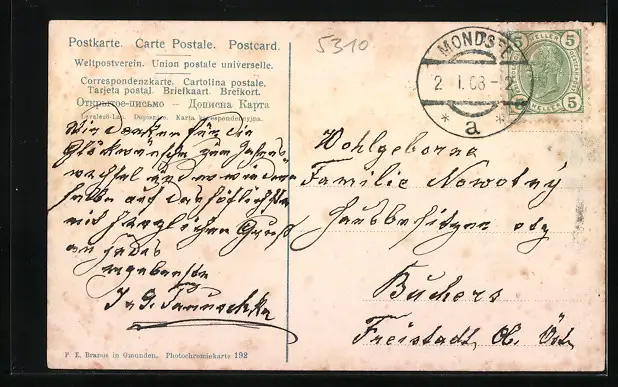 Postkarte. Carte Postale. Postcard.
Weltpostverein. Union postale universelle.
Correspondenzkarte. Cartolina postale.
Tarjeta postal. Briefkaart. Brefkort.
Открытое-письмо — Дописна Карта
Levelező-Lap. Dopisnice. Karta korespondencyjna.
5310
MONDSEE
2. I. 08
* a *
5 HELLER 5
5
Wir danken für die
Glückwünsche zum Jahres-
wechsel und erwiedern
selbe auf das höflichste
mit herzlichen Gruß
an jedes
ergebenste
J. G. Januschka
Wohlgeborne
Familie Nowotny
Hausbesitzer
Buchers
Freistadt, Ob. Öst.
F. E. Brandt in Gmunden. Photochromiekarte 192